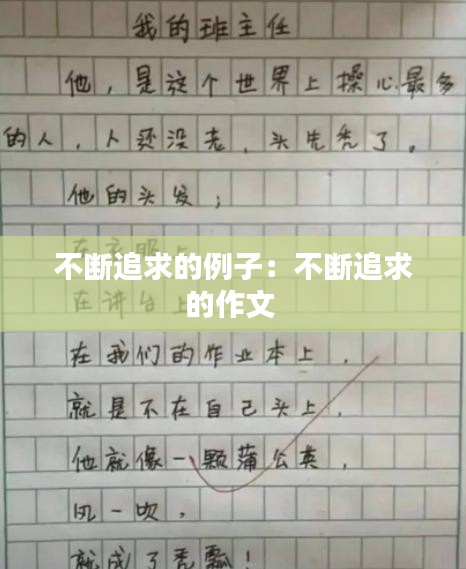 我的班主任
他，是这个世界上操心最多
的人，人还没老，头先秃了。
他的头发；
在衣服上
不断追求的例子：不断追求
在讲台上
的作文
在我们的作业本上，
就是不在自己头上，
他就像一颗蒲公英，
风一吹，
就成了秃瓢！